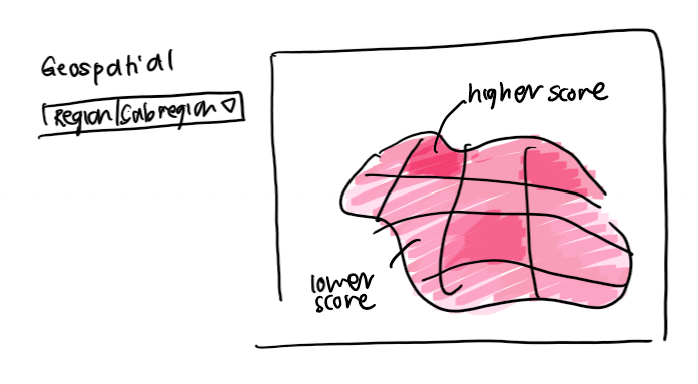 Geospatial
Region/Subregion
higher score
lower
score